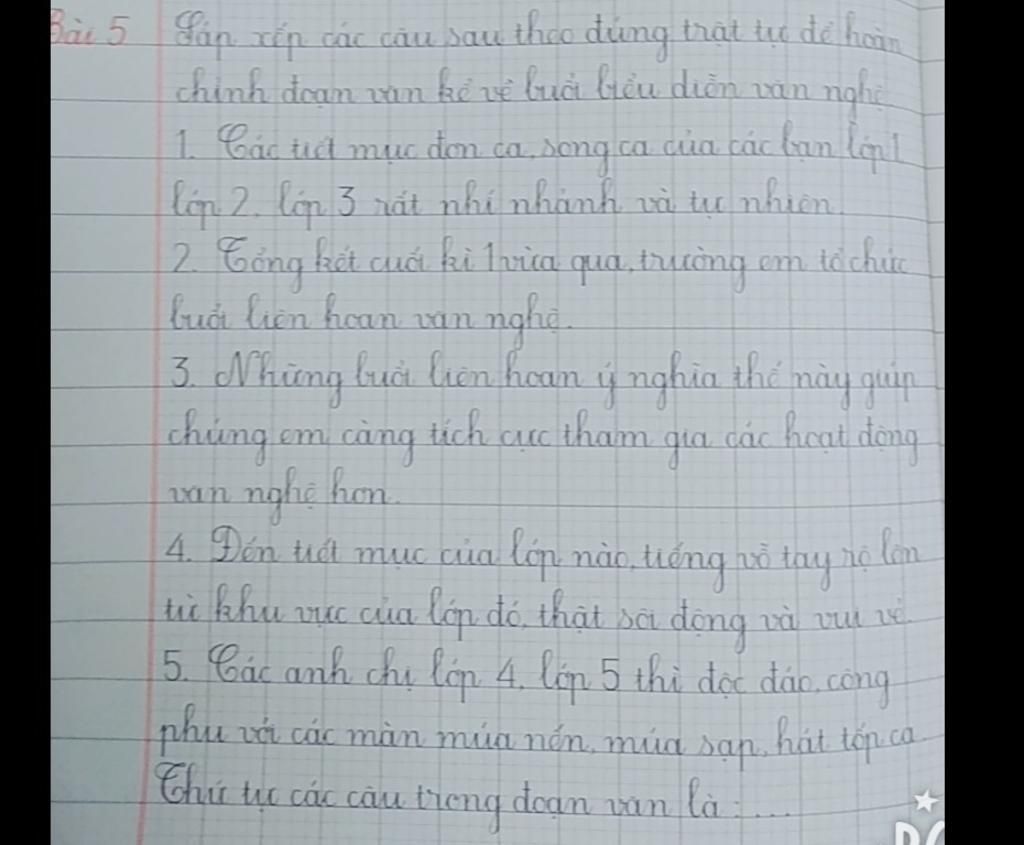 Bài 5 Sắp xếp các câu sau theo đúng trật tự để hoàn
chỉnh đoạn văn kể về buổi biểu diễn văn nghệ
1. Các tiết mục đơn ca, song ca của các bạn lớp 1
lớp 2, lớp 3 rất nhí nhảnh và tự nhiên.
2. Tổng kết cuối kì 1 vừa qua, trường em tổ chức
buổi liên hoan văn nghệ.
3. Những buổi liên hoan ý nghĩa thế này giúp
chúng em càng tích cực tham gia các hoạt động
văn nghệ hơn.
4. Đến tiết mục của lớp nào, tiếng vỗ tay rộ lên
từ khu vực của lớp đó, thật sôi động và vui vẻ.
5. Các anh chị lớp 4, lớp 5 thì độc đáo, công
phu với các màn múa nón, múa sạp, hát tốp ca.
Thứ tự các câu trong đoạn văn là:....